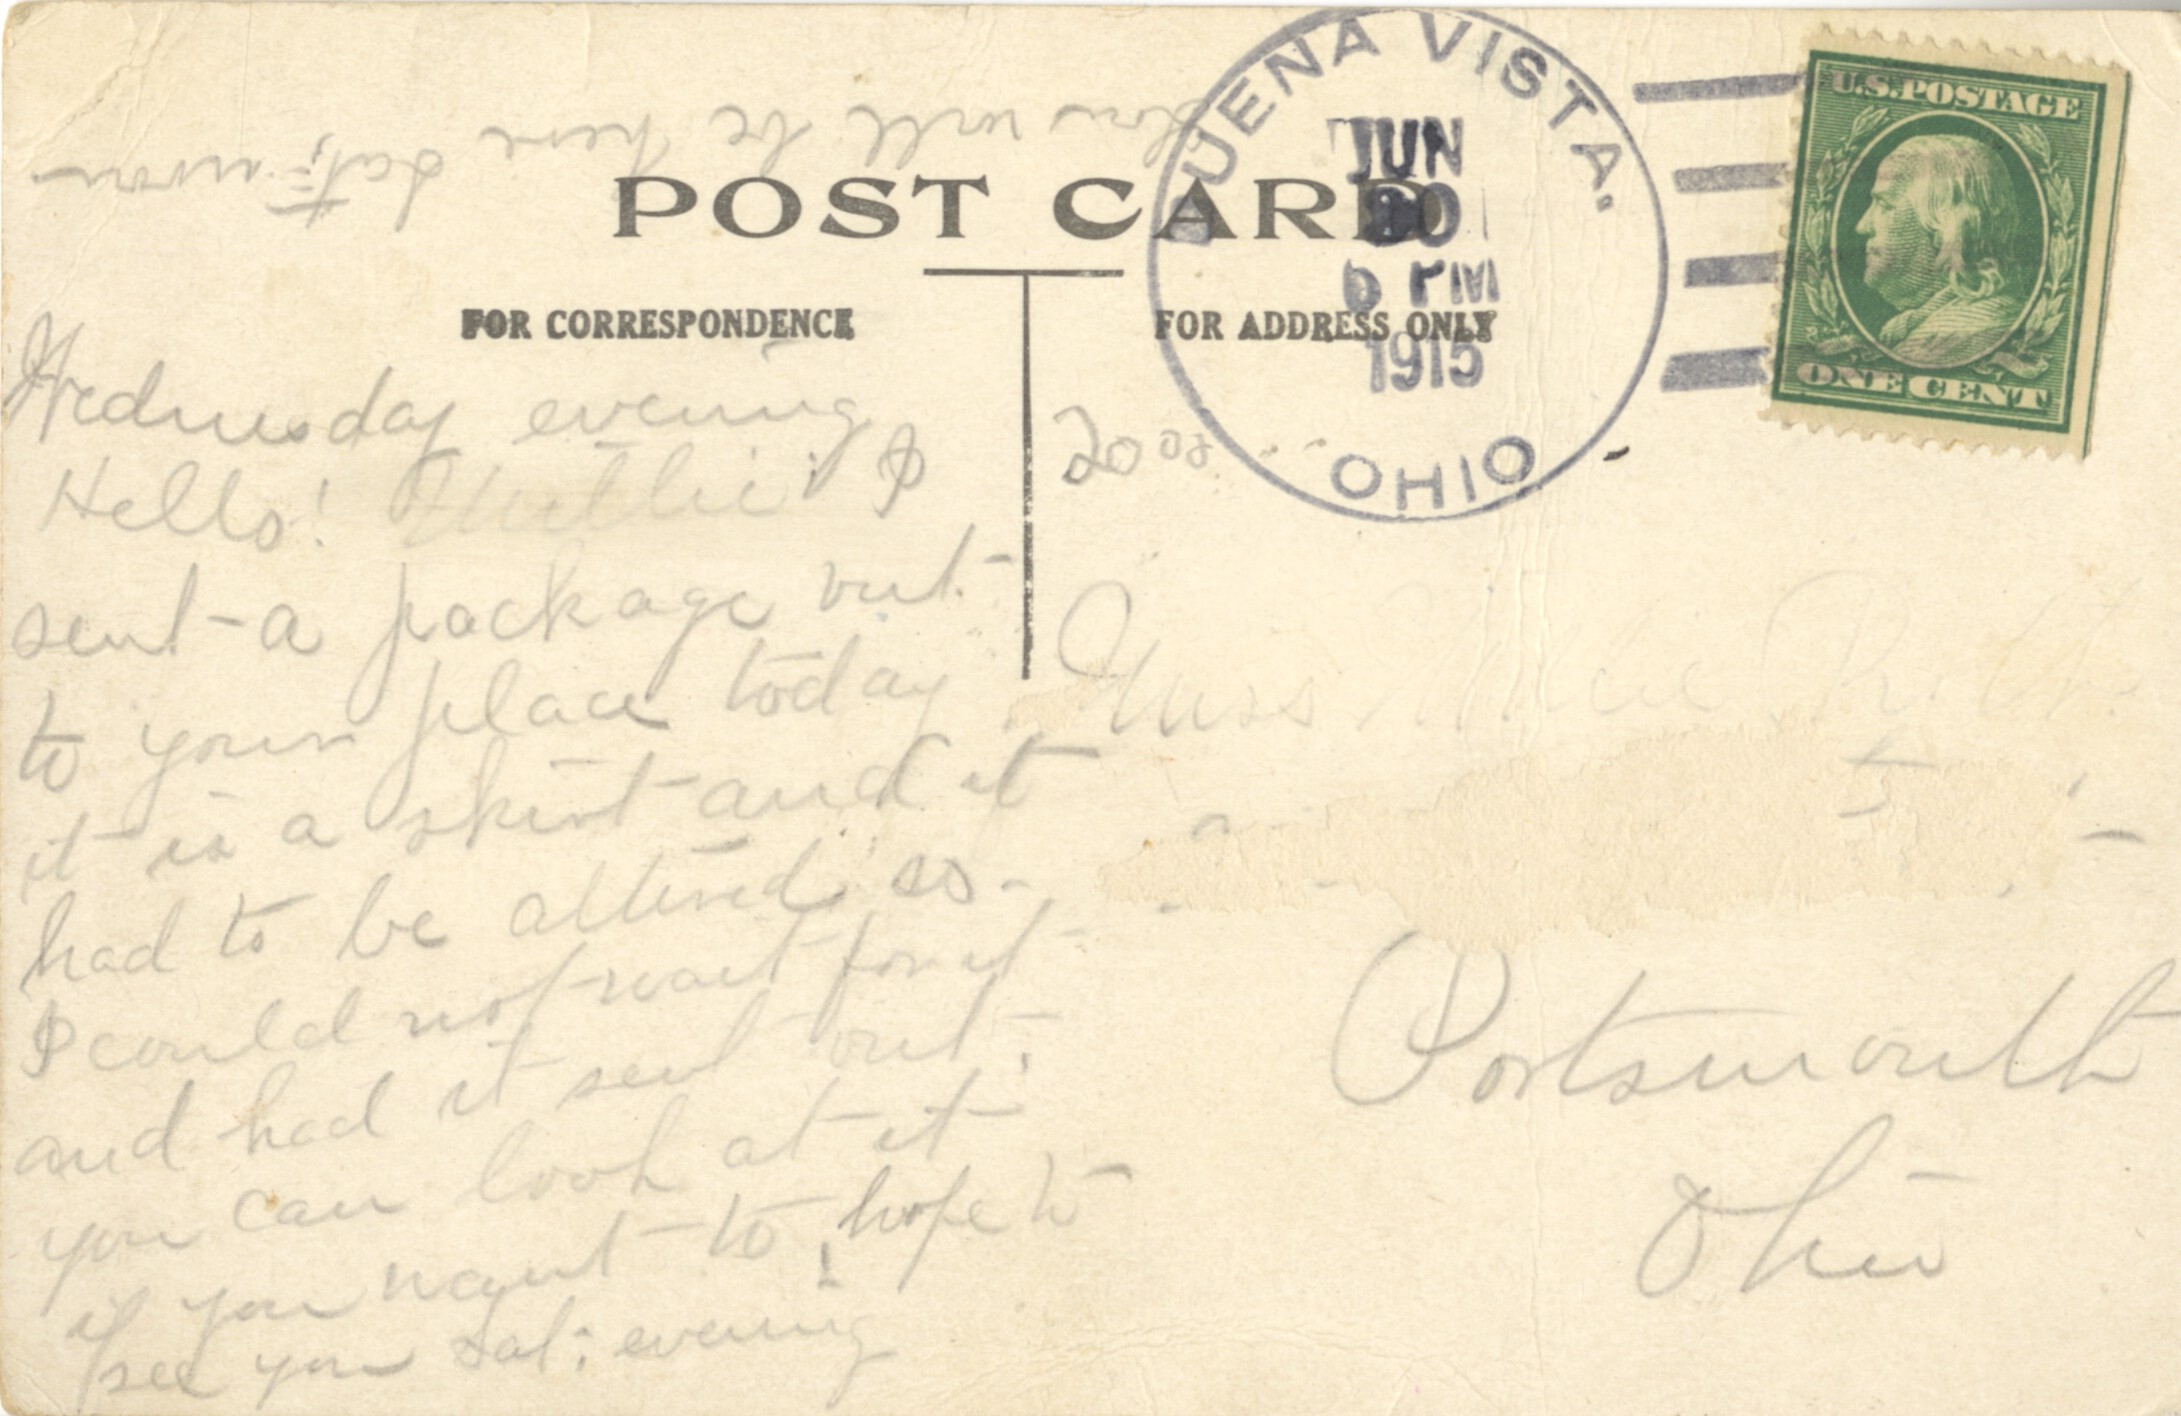 You will be here
Sat; morn
POST CARD
FOR CORRESPONDENCE
FOR ADDRESS ONLY
BUENA VISTA.
JUN
30
6 PM
1915
OHIO
U.S. POSTAGE
ONE CENT
Wednesday evening
Hello! I
sent a package out
to your place today
it is a skirt and it
had to be altered so
I could not wait for it
and had it sent out;
you can look at it
if you want to, hope to
see you Sat; evening
20
Miss
Portsmouth
Ohio